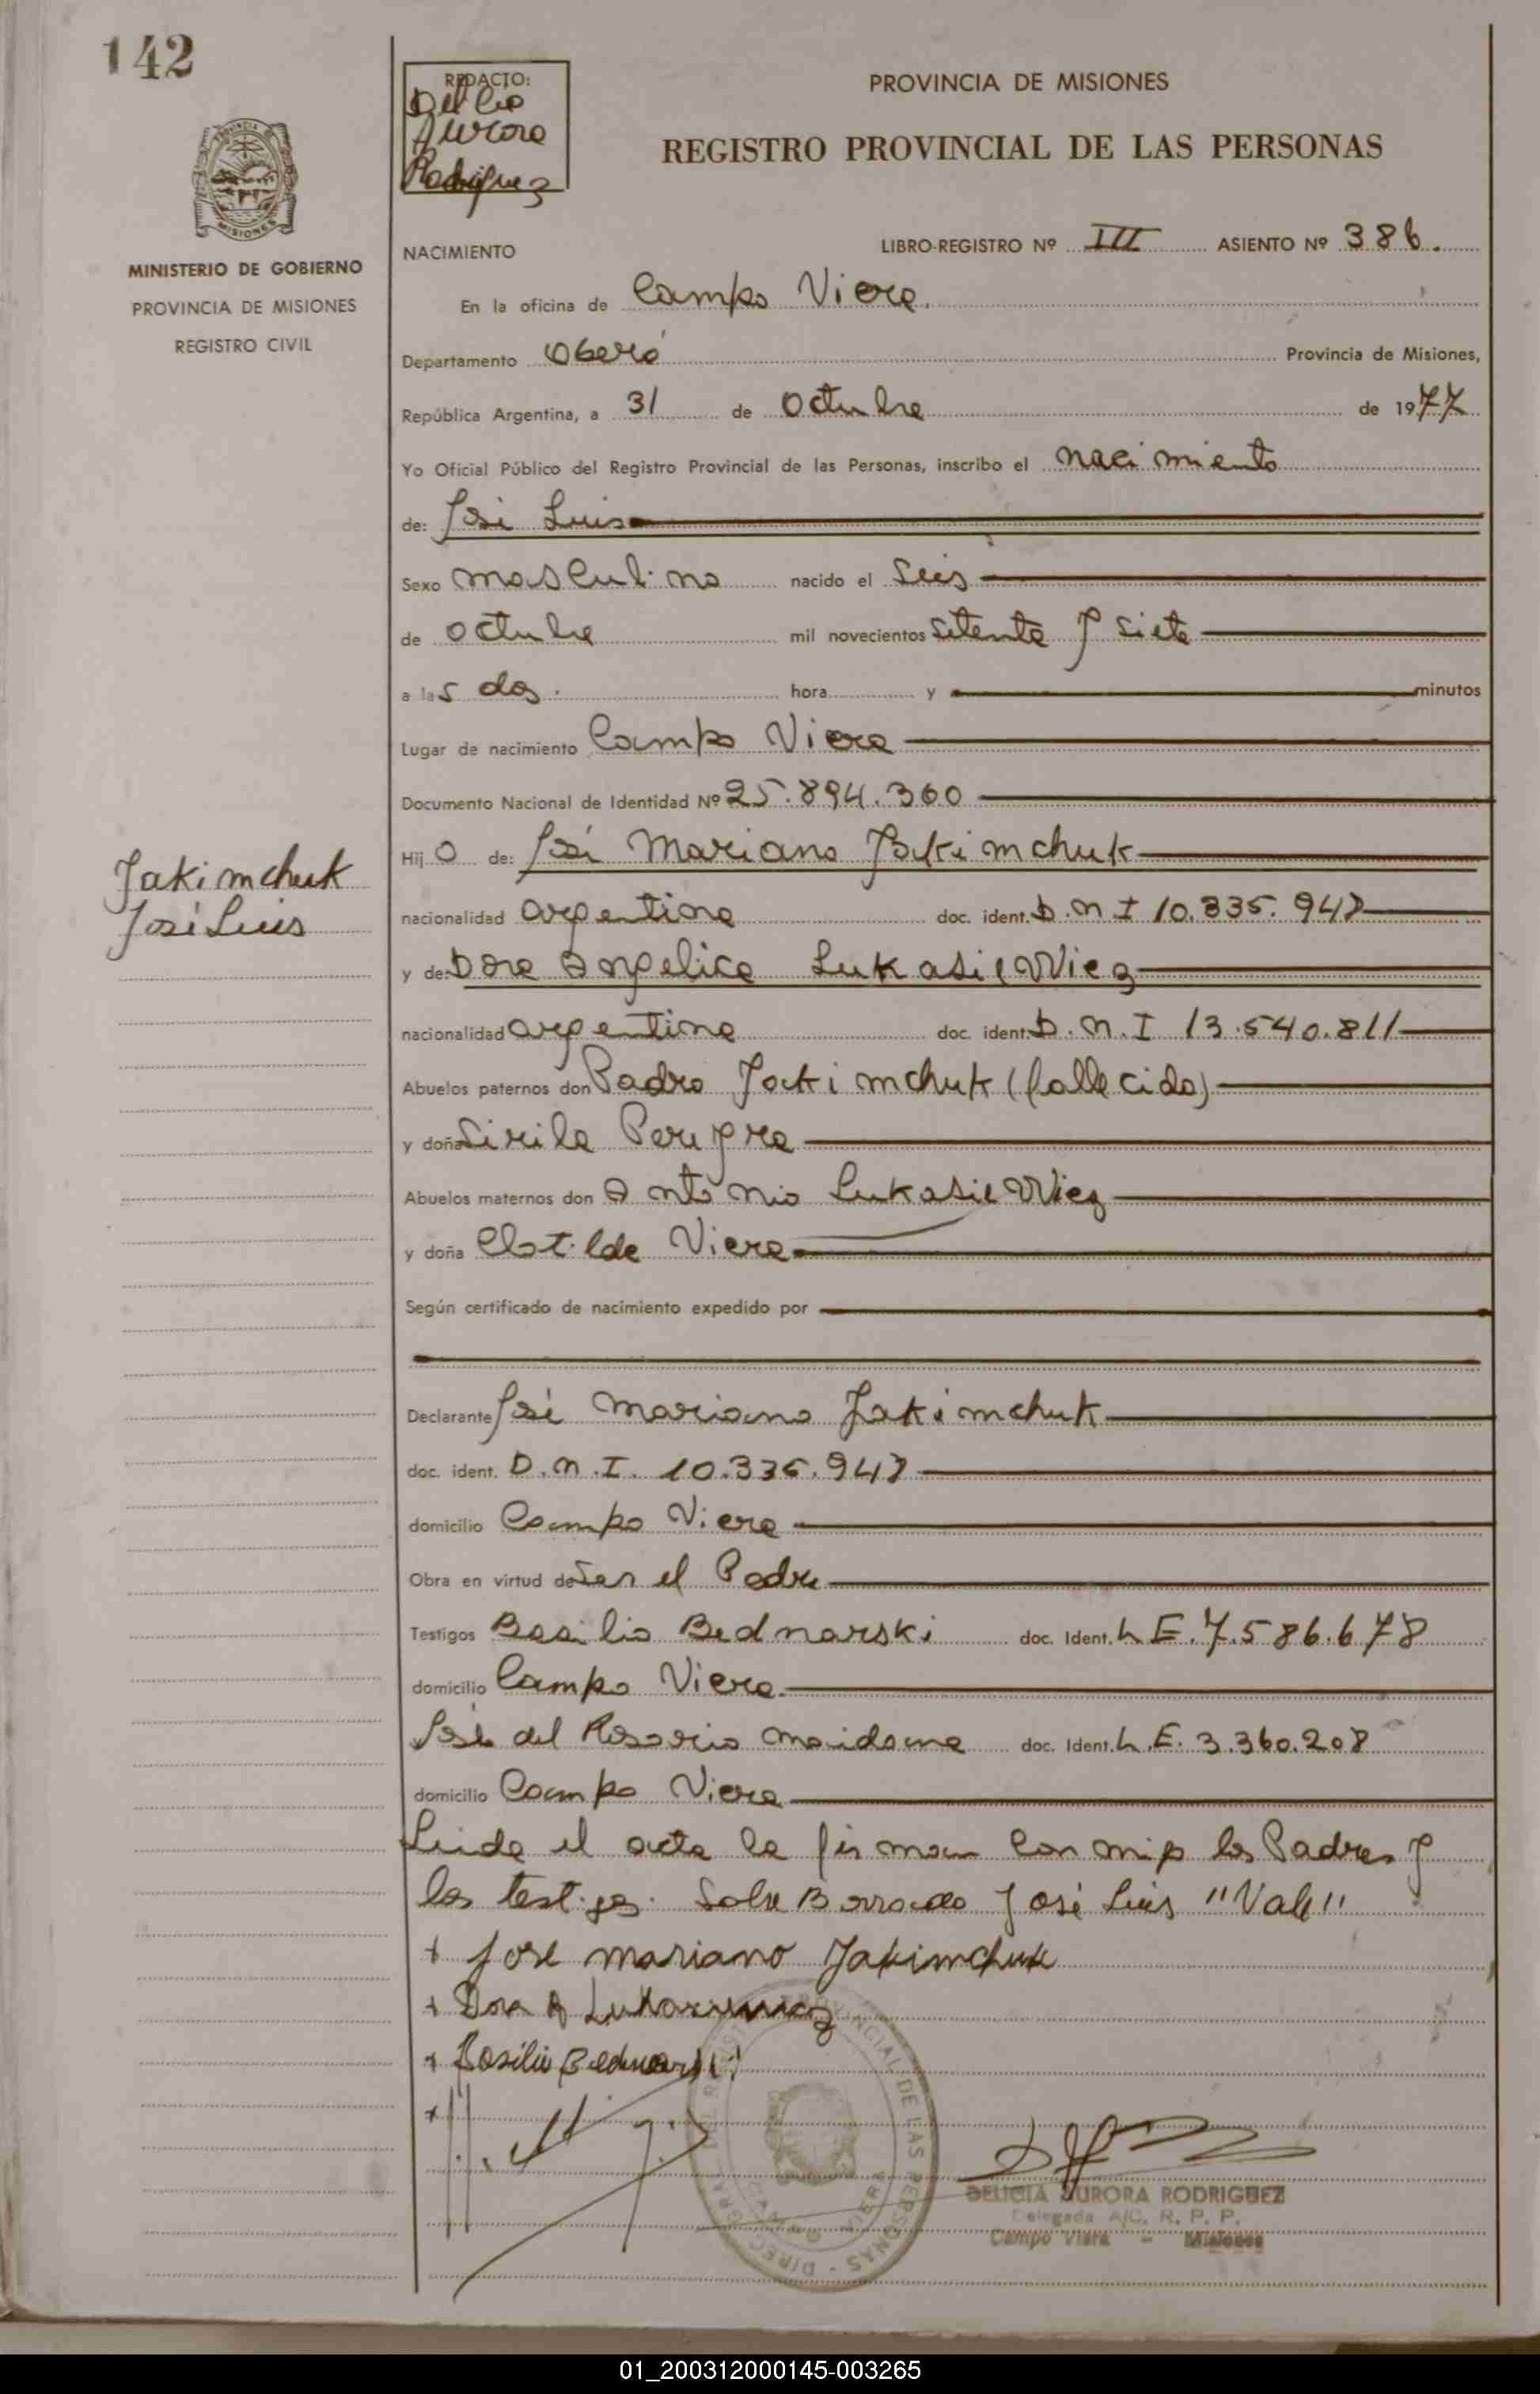 142
REDACTO:
Aurora
Rodriguez
PROVINCIA DE MISIONES
REGISTRO PROVINCIAL DE LAS PERSONAS
MINISTERIO DE GOBIERNO
PROVINCIA DE MISIONES
REGISTRO CIVIL
NACIMIENTO
LIBRO-REGISTRO Nº III ASIENTO Nº 386.
En la oficina de Campo Viera.
Departamento Oberá Provincia de Misiones,
República Argentina, a 31 de Octubre de 1977
Yo Oficial Público del Registro Provincial de las Personas, inscribo el nacimiento
de: José Luis
Sexo masculino nacido el Seis
de octubre mil novecientos Setenta y Siete
a las dos. hora y minutos
Lugar de nacimiento Campo Viera
Documento Nacional de Identidad Nº 25.894.360
Hijo de: José Mariano Jakimchuk
Jakimchuk
José Luis
nacionalidad argentina doc. ident. D.N.I 10.335.948
y de: Dora Angelica Lukasiewiez
nacionalidad argentina doc. ident. D.N.I 13.540.811
Abuelos paternos don Padro Jakimchuk (fallecido)
y doña Sirila Pereyra
Abuelos maternos don Antonio Lukasiewiez
y doña Clotilde Viera
Según certificado de nacimiento expedido por
Declarante José Mariano Jakimchuk
doc. ident. D.N.I. 10.335.948
domicilio Campo Viera
Obra en virtud de Ser el Padre
Testigos Basilio Bednarski doc. Ident. L.E. 7.586.678
domicilio Campo Viera.
José del Rosario Maidana doc. Ident. L.E. 3.360.208
domicilio Campo Viera
Leida el acta la firman con migo los Padres y
los testigos. Sobre Borrado José Luis "Vale"
+ Jose mariano Jakimchuk
+ Dora A
+ Basilio Bednarski
DELICIA AURORA RODRIGUEZ
Delegada A/C. R. P. P.
Campo Viera - Misiones
01_200312000145-003265